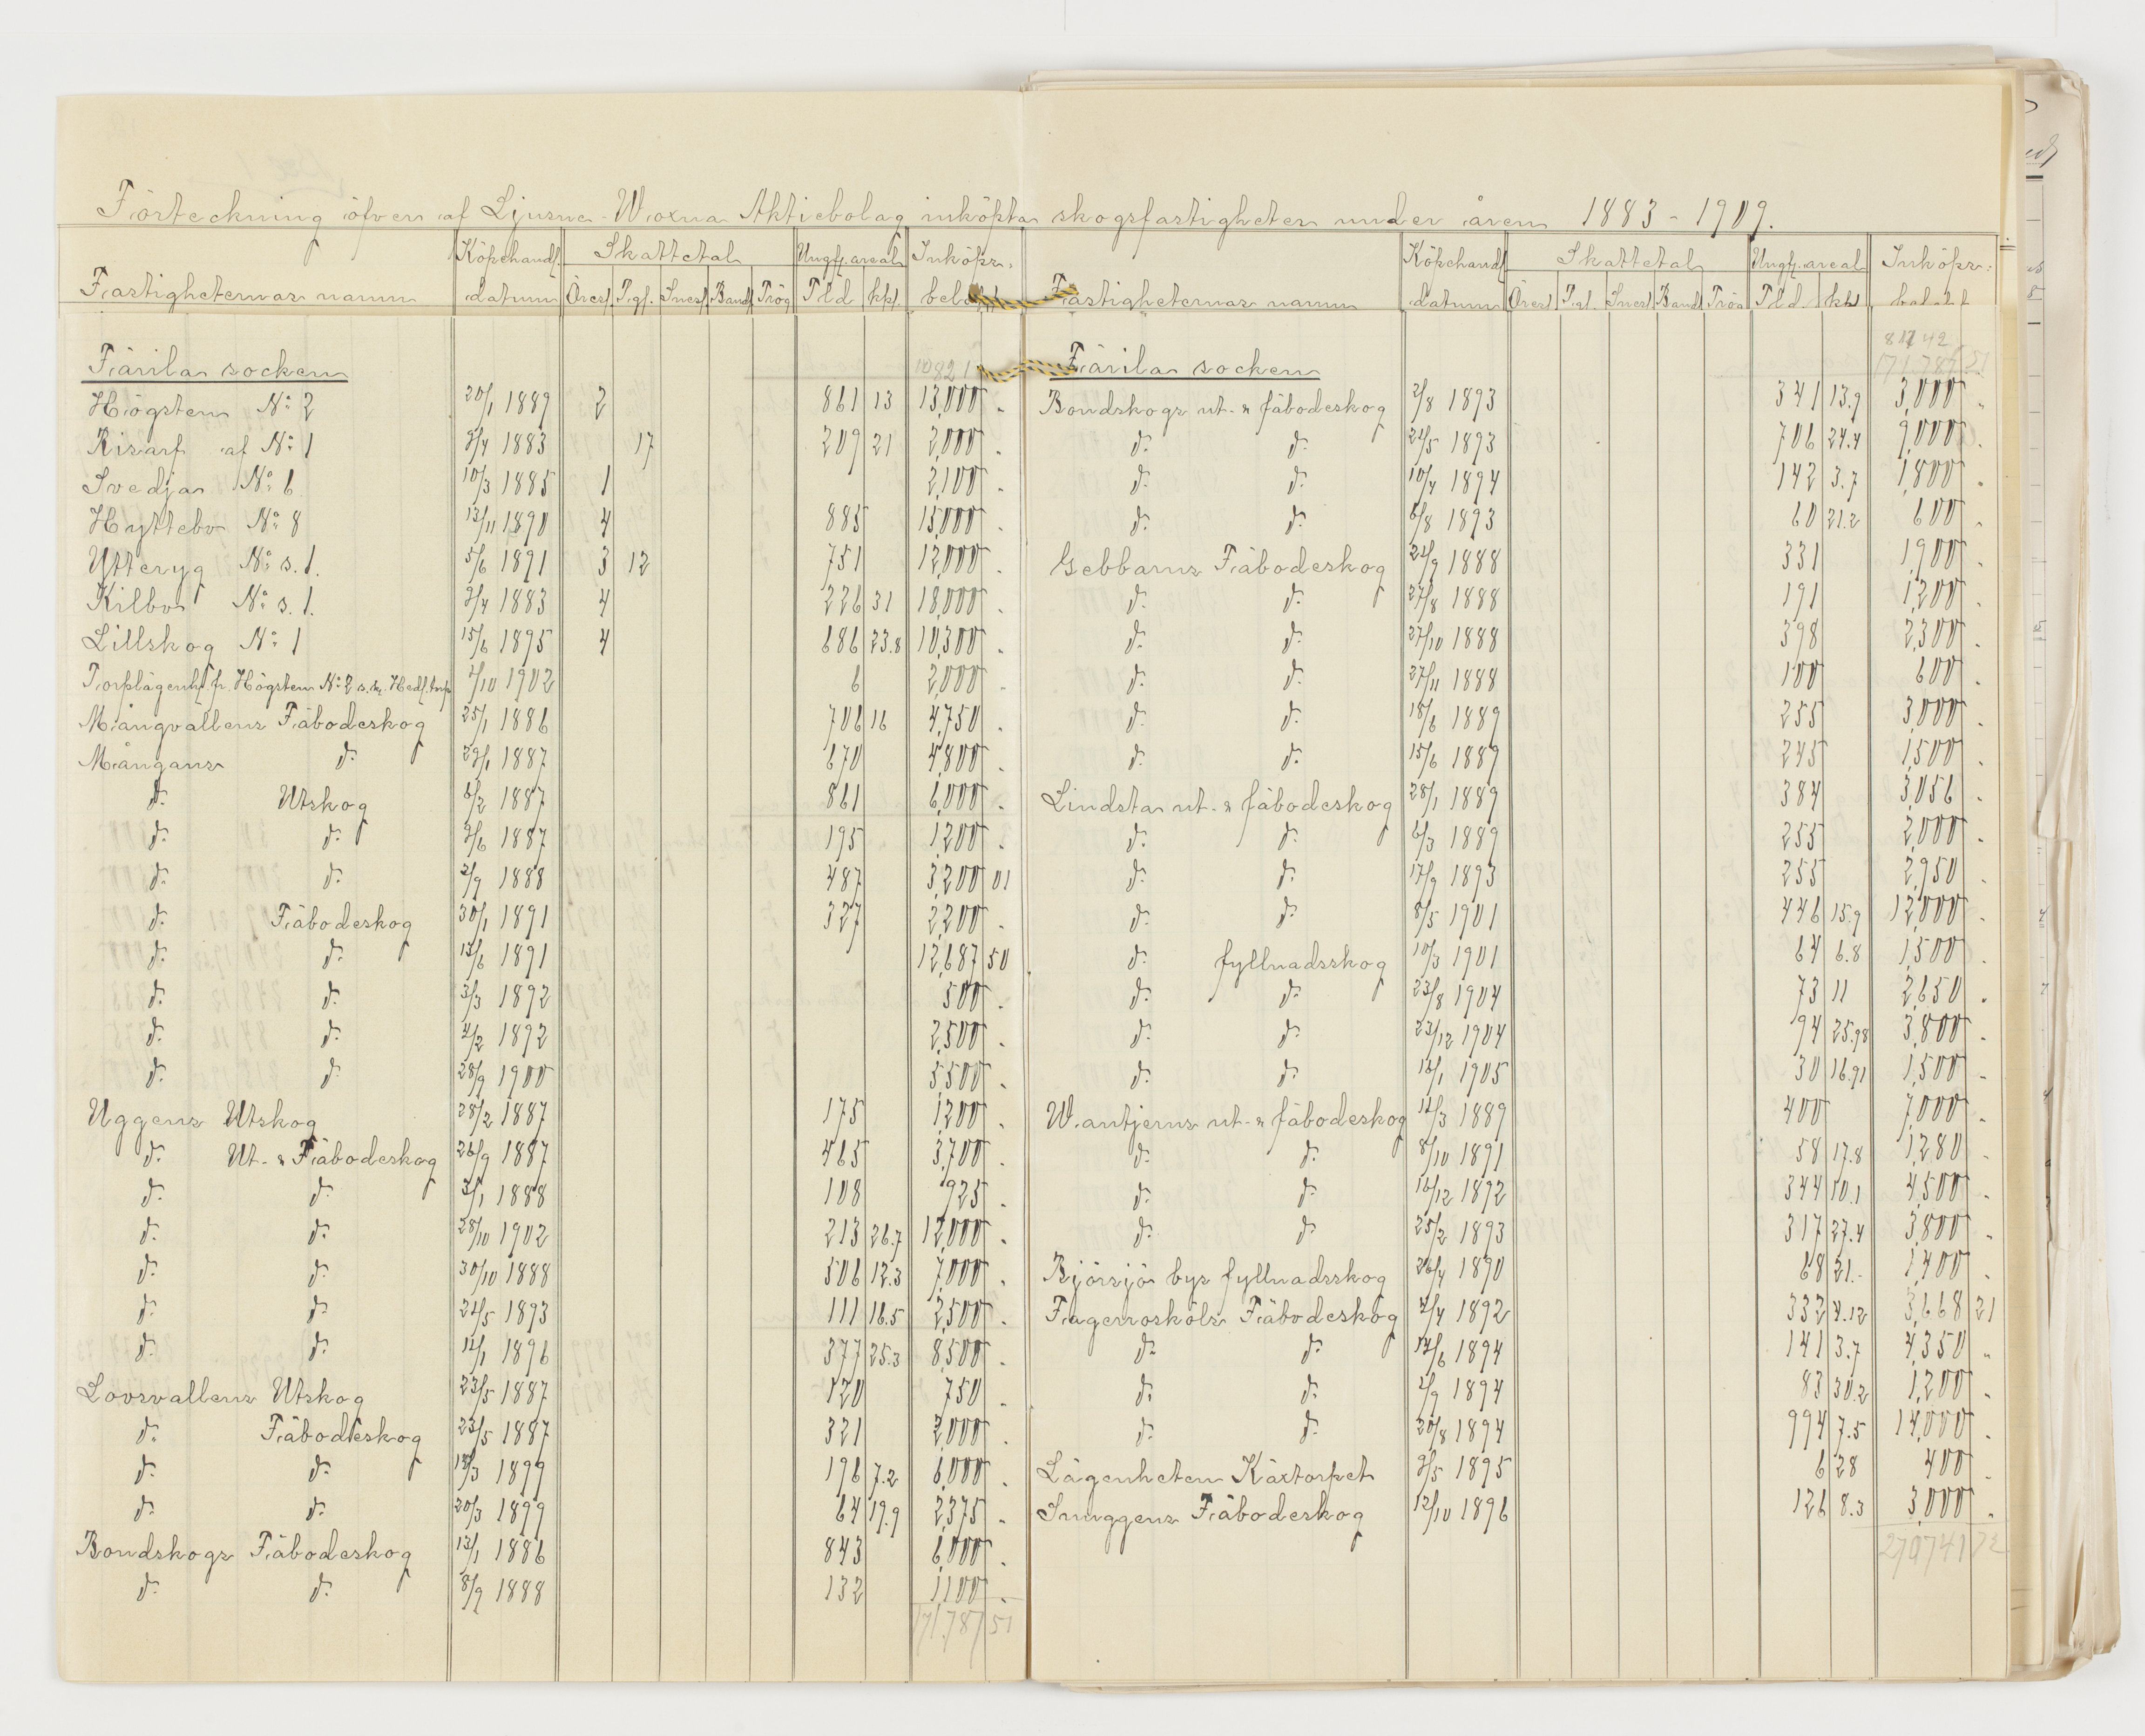 Förteckning öfver af Ljusne-Woxna Aktiebolag inköpta skogsfastigheter under åren 1883-1909.
Fastigheternas namn Köpehandl. datum Skattetal Öresl. Pgl. Snesl Bandl Trög Ungf. areal Tld kpl. Inköps-
Färila socken
Högsten No 2 20/1 1889 2 861 13 13,000 .
Risarf af No 1 3/4 1883 17 209 21 2,000 .
Svedja No 6 10/3 1885 1 2,100 .
Hyttebo No 8 13/11 1890 4 885 15,000 .
Ytteryg No s. 1. 5/6 1891 3 12 751 12,000 .
Kilbo No s. 1. 3/4 1883 4 226 31 18,000 .
Lillskog No 1 15/6 1895 4 686 23.8 10,300 .
Torplägenh. fr. Högsten No 2 s.k. Hedl.torp 1/10 1902 6 2,000 .
Mångvallens Fäbodeskog 25/1 1886 706 16 4,750 .
Mångans do 29/1 1887 670 4,800 .
do Utskog 6/2 1887 861 6,000 .
do do 3/6 1887 195 1,200 .
do do 2/9 1888 487 3,200 01
do Fäbodeskog 30/1 1891 327 2,200 .
do do 13/6 1891 12,687 50
do do 3/3 1892 500 .
do do 2/2 1892 2,500 .
do do 28/9 1900 5,500 .
Uggens Utskog 28/2 1887 175 1,200 .
do Ut- & Fäbodeskog 26/9 1887 465 3,700 .
do do 3/1 1888 108 925 .
do do 28/10 1902 213 26.7 12,000 .
do do 30/10 1888 506 12.3 7,000 .
do do 24/5 1893 111 16.5 2,500 .
do do 14/1 1896 377 25.3 8,500 .
Lovsvallens Utskog 23/5 1887 120 750 .
do Fäbodeskog 23/5 1887 321 2,000 .
do do 18/3 1899 196 7.2 6,000 .
do do 20/3 1899 64 19.9 2,375 .
Bondskogs Fäbodeskog 13/1 1886 843 6,000 .
do do 8/9 1888 132 1,100 .
171.787 51
Fastigheternas namn Köpehandl. datum Skattetal Öresl Pgl. Snesl Bandl Trög Ungf. areal Tld. kpl Inköps-
Färila socken
171.787 51
Bondskogs ut- & fäbodeskog 2/8 1893 341 13.9 3,000 .
do do 24/5 1893 706 24.4 9,000 .
do do 10/4 1894 142 3.7 1,800 .
do do 6/8 1893 60 21.2 600 .
Gebbarns Fäbodeskog 24/9 1888 331 1,900 .
do do 27/8 1888 191 1,200 .
do do 27/10 1888 398 2,300 .
do do 27/11 1888 100 600 .
do do 18/6 1889 255 3,000 .
do do 15/6 1889 245 1,500 .
Lindsta ut- & fäbodeskog 28/1 1889 384 3,056 .
do do 6/3 1889 255 2,000 .
do do 17/9 1893 255 2,950 .
do do 8/5 1901 446 15.9 12,000 .
do fyllnadsskog 10/3 1901 64 6.8 1,500 .
do do 23/8 1904 73 11 2,650 .
do do 23/12 1904 94 25.98 3,800 .
do do 13/1 1905 30 16.91 1,500 .
Wantjerns ut- & fäbodeskog 14/3 1889 400 7,000 .
do do 8/10 1891 58 17.8 1,280 .
do do 16/12 1892 344 10.1 4,500 .
do do 25/2 1893 317 27.4 3,800 .
Björsjö bys fyllnadsskog 26/4 1890 68 21.- 1,400 .
Fagerrosköls Fäbodeskog 4/4 1892 332 4.12 3,668 21
do do 14/6 1894 141 3.7 4,350 .
do do 1/9 1894 83 30.2 1,200 .
do do 20/8 1894 994 7.5 14,000 .
Lägenheten Käxtorpet 3/5 1895 6 28 400 .
Snuggens Fäbodeskog 12/10 1896 126 8.3 3,000 .
270741 72